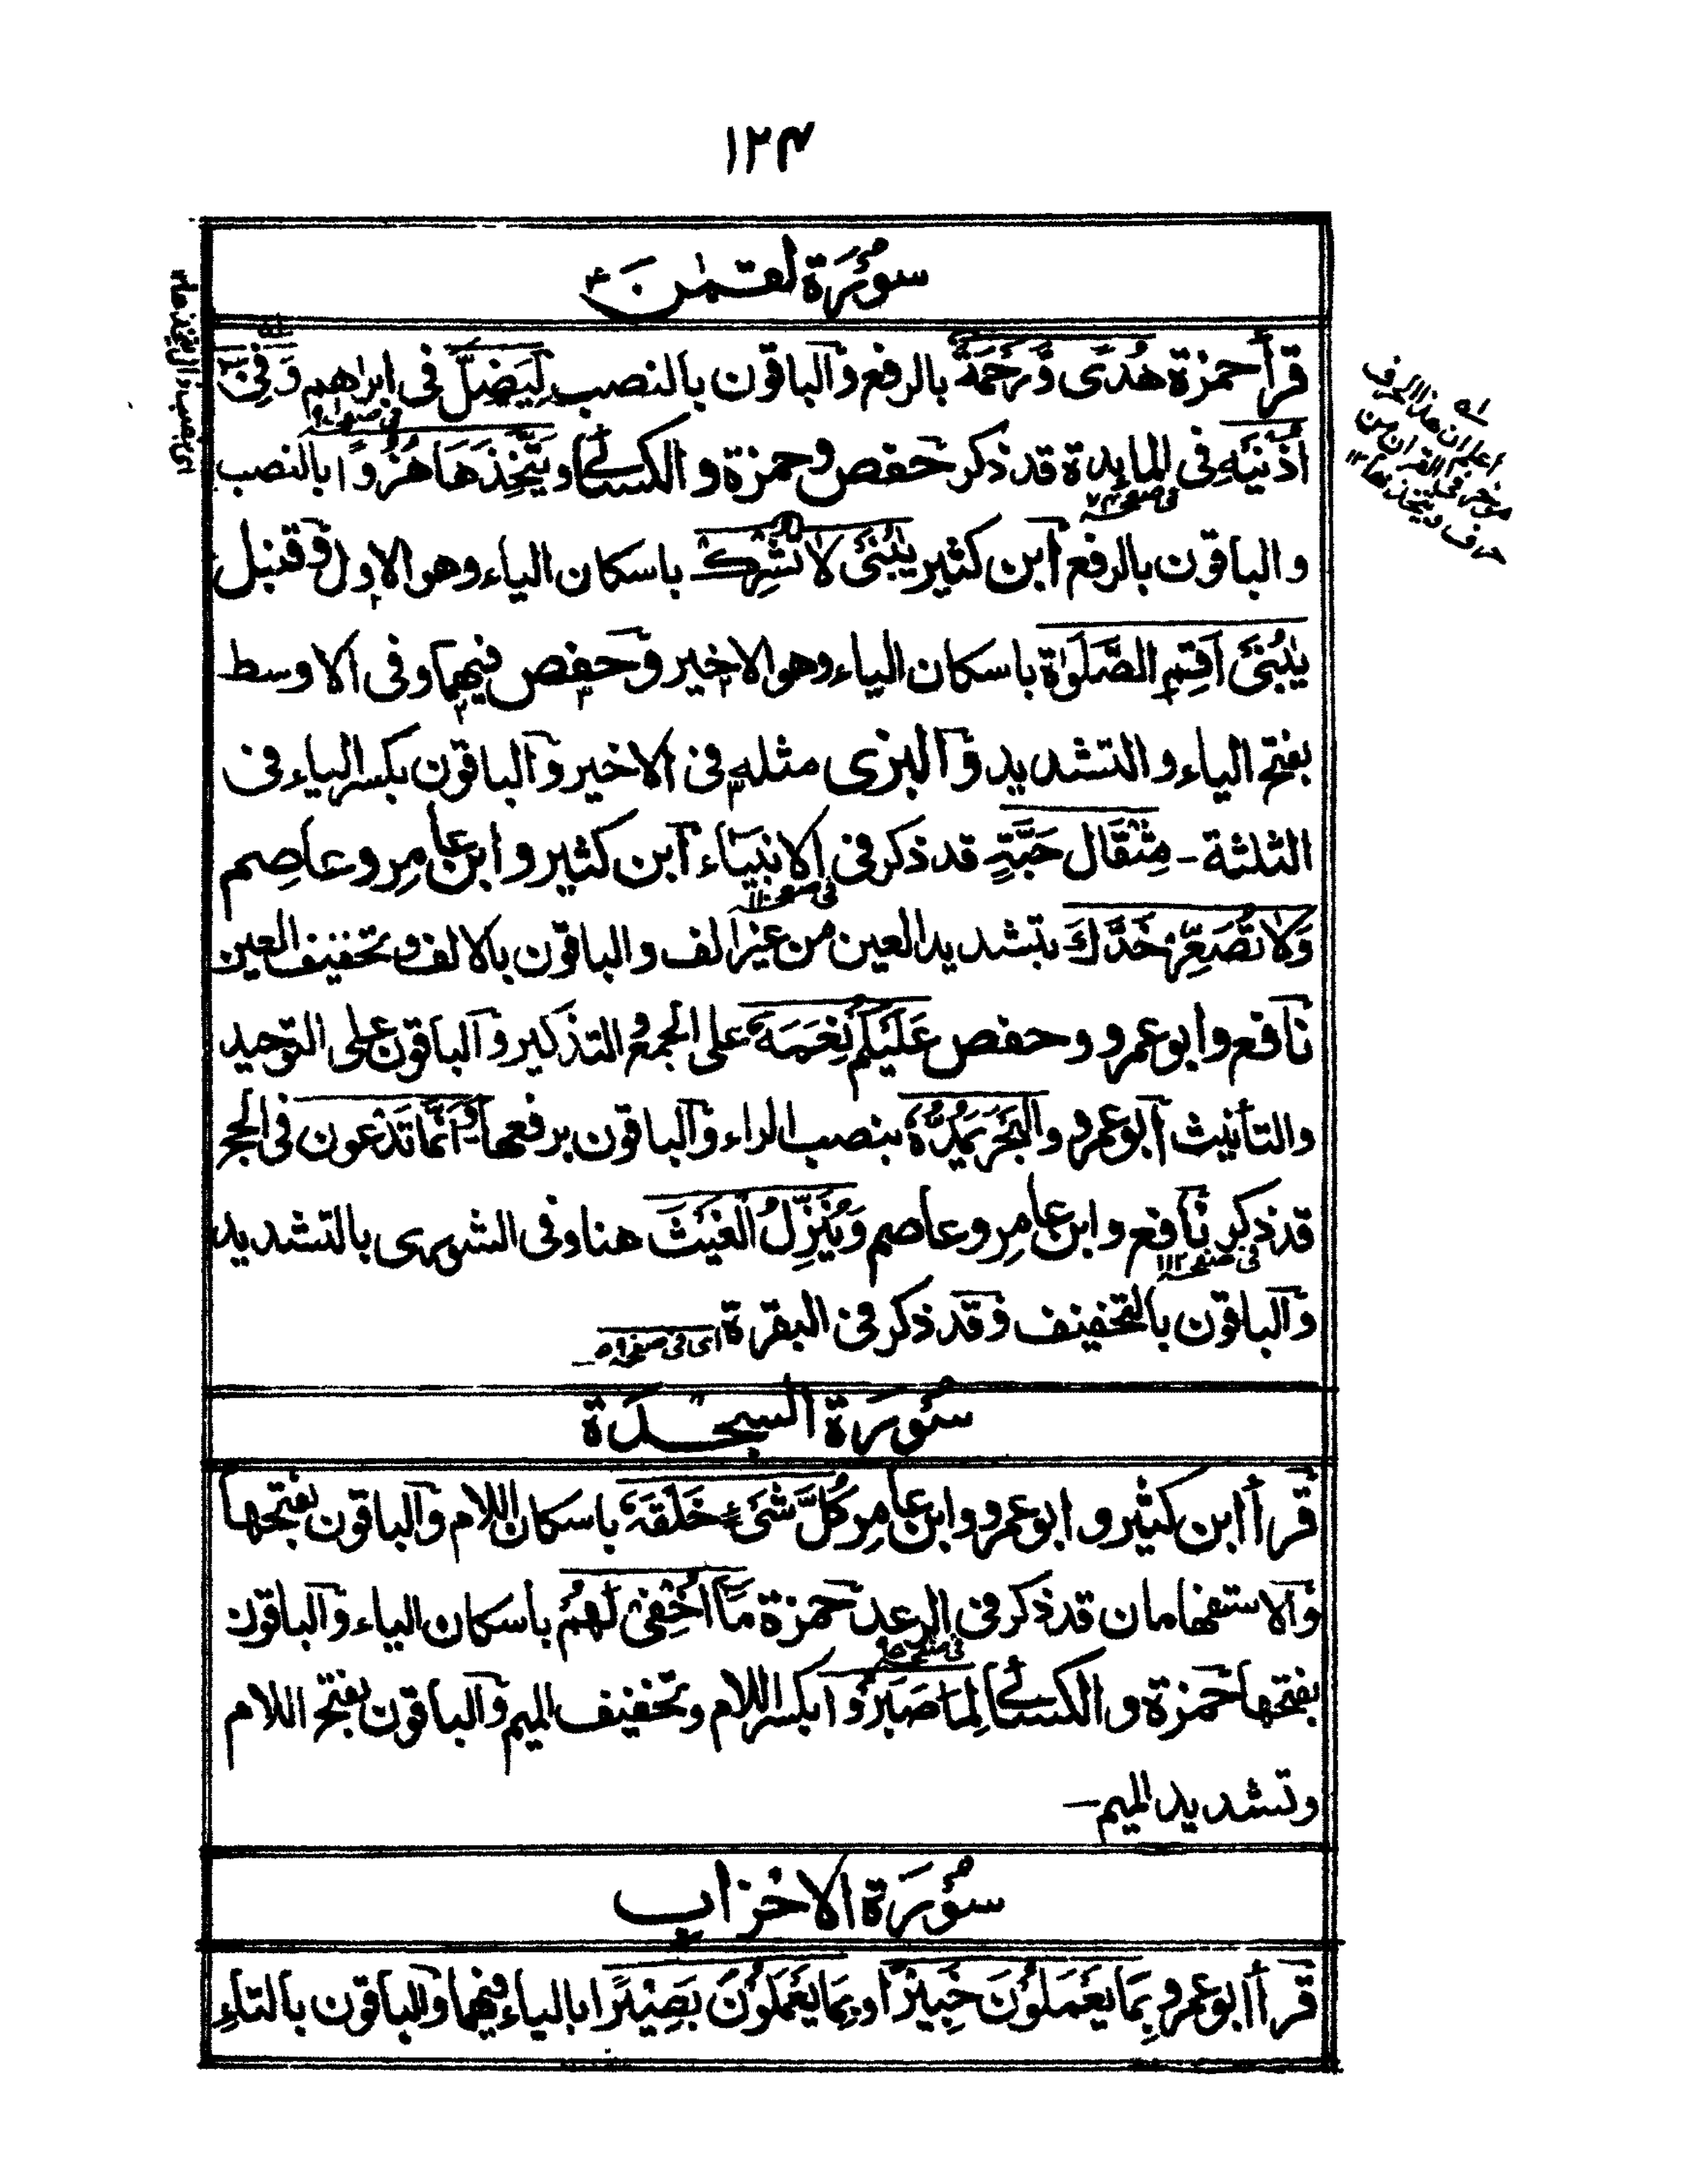 ١٢٤
سُوْرَة لقمٰن
قرأ حمزة هُدًى وَّرَحْمَةٌ بالرفع والباقون بالنصب لِيَضِلَّ فى ابرٰهيم وَفِىْ
فى صفحه
اُذُنَيْهِ فى المايدة قد ذكر حفص وحمزة والكسائى ويَتَّخِذَهَا هُزُوًا بالنصب
فى صفحه ٧٣
والباقون بالرفع ابن كثير يٰبُنَىْ لَا تُشْرِكْ باسكان الياء وهو الاول وقنبل
يٰبُنَىْ اَقِمِ الصَّلٰوةَ باسكان الياء وهو الاخير وحفص فيهما وفى الاوسط
بفتح الياء والتشديد والبزى مثله فى الاخير والباقون بكسر الياء فى
الثلثة - مِثْقَالَ حَبَّةٍ قد ذكر فى الانبياء ابن كثير وابن عامر وعاصم
فى صفحه ١١٠
وَلَا تُصَعِّرْ خَدَّكَ بتشديد العين من غير الف والباقون بالالف وتخفيف العين
نافع وابو عمرو وحفص عَلَيْكُمْ نِعَمَهٗ على الجمع والتذكير والباقون على التوحيد
والتأنيث ابو عمرو والْبَحْرَ يَمُدُّهٗ بنصب الراء والباقون برفعها وَاَنَّمَا تَدْعون فى الحج
قد ذكر نافع وابن عامر وعاصم وَيُنَزِّلُ الْغَيْثَ هنا وفى الشورى بالتشديد
فى صفحه ١١٢
والباقون بالتخفيف وقد ذكر فى البقرة اى فى صفحه ٥٩ -
سُوْرَة السجدَة
قرأ ابن كثير وابو عمرو وابن عامر كُلَّ شَىْءٍ خَلْقَهٗ باسكان اللام والباقون بفتحها
والاستفهامان قد ذكر فى الرعد حمزة مَا اُخْفِىْ لَهُمْ باسكان الياء والباقون
فى صفحه
بفتحها حمزة والكسائى لِمَا صَبَرُوْا بكسر اللام وتخفيف الميم والباقون بفتح اللام
وتشديد الميم -
سُوْرَة الاحزاب
قرأ ابو عمرو بِمَا يَعْمَلُوْنَ خَبِيْرًا وبِمَا يَعْمَلُوْنَ بَصِيْرًا بالياء فيهما والباقون بالتاء
اعلم ان هذا الحرف
مؤخر فى القرآن من
حرف ويتخذها ١٢